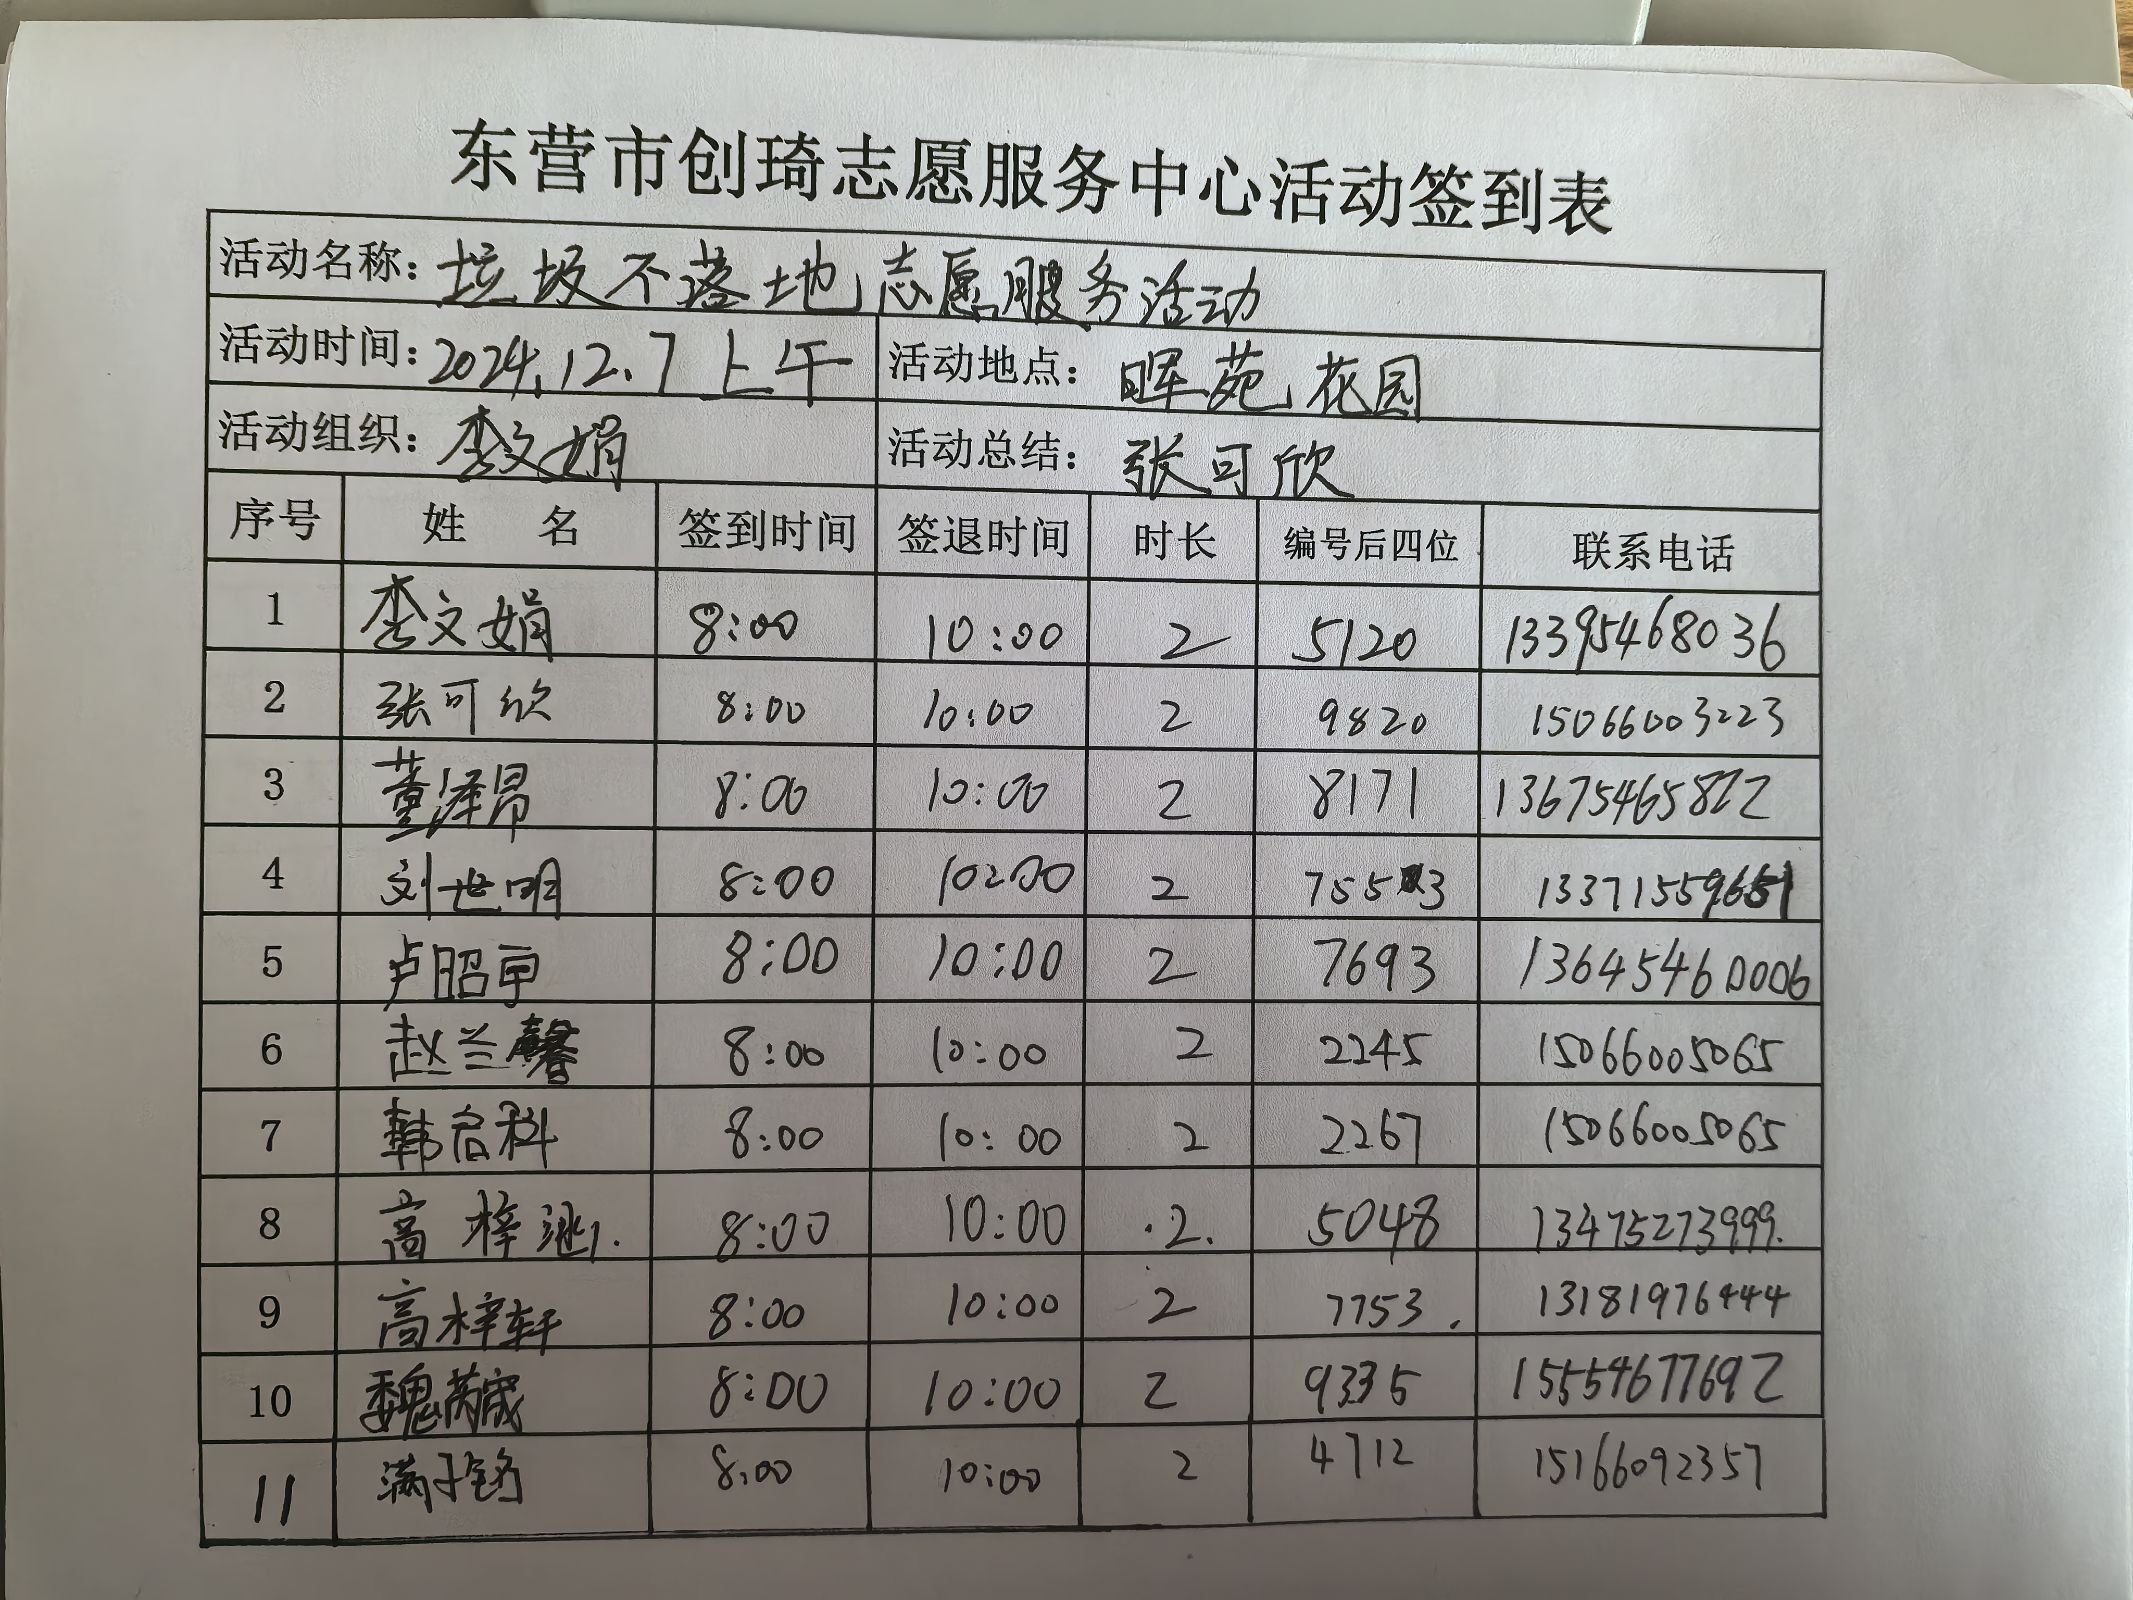 东营市创琦志愿服务中心活动签到表
活动名称：垃圾不落地志愿服务活动
活动时间：2024.12.7上午 活动地点：晖苑花园
活动组织：李文娟 活动总结：张可欣
序号 姓 名 签到时间 签退时间 时长 编号后四位 联系电话
1 李文娟 8:00 10:00 2 5120 13395468036
2 张可欣 8:00 10:00 2 9820 15066003223
3 董泽昂 8:00 10:00 2 8171 13675465822
4 刘世明 8:00 10:00 2 7553 13371559651
5 卢昭宇 8:00 10:00 2 7693 13645460006
6 赵兰馨 8:00 10:00 2 2245 15066005065
7 韩启科 8:00 10:00 2 2267 15066005065
8 高梓 8:00 10:00 2 5048 13475273999
9 高梓轩 8:00 10:00 2 7753 13181976444
10 魏 8:00 10:00 2 9335 15554677692
11 满子铭 8:00 10:00 2 4712 15166092357